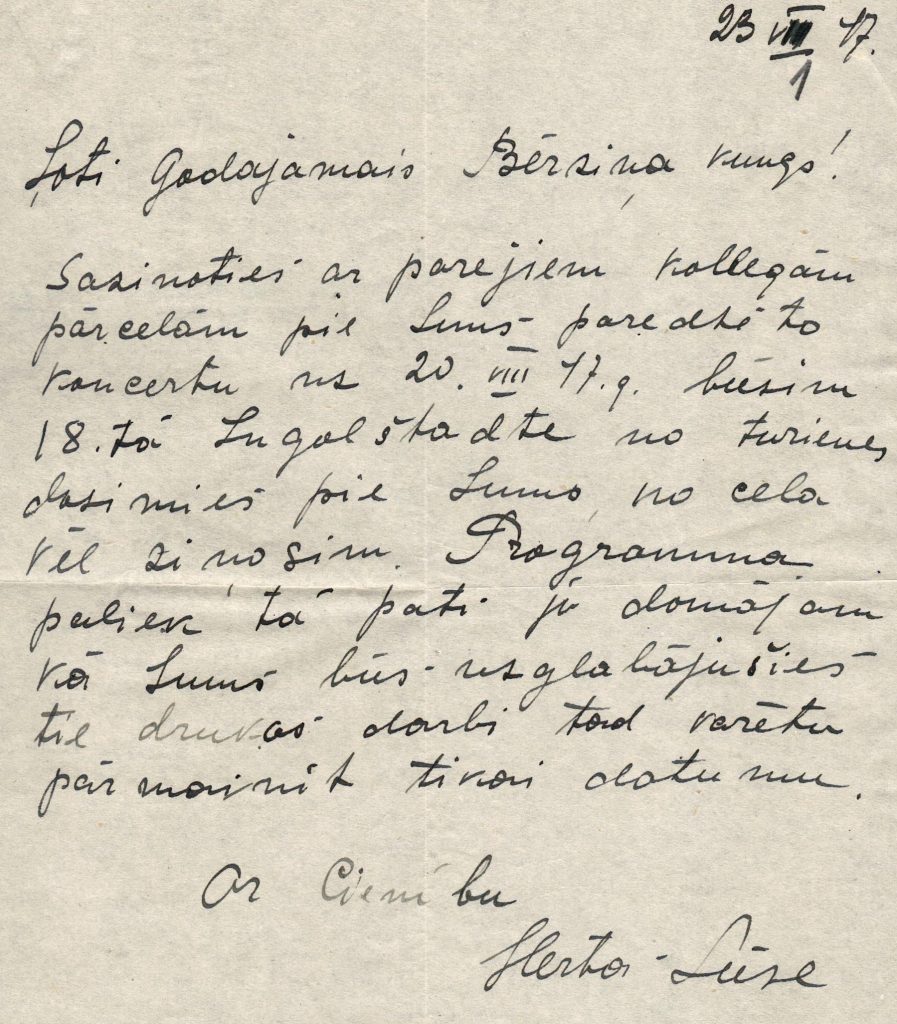 23 VIII 47.
1
Ļoti Godājamais Bērziņa kungs!
Sazinoties ar parējiem kollegām
pārceļam pie Jums paredzēto
koncertu uz 20. VIII 47.g. būsim
18.tā Ingolštadte no turienes
dosimies pie Jums, no ceļa
vēl ziņosim. Programma
paliek tā pati jo domājam
kā Jums būs uzglabājušies
tie drukas darbi tad varētu
pārmainit tikai datumu.
Ar Cienību
Herta Lūse